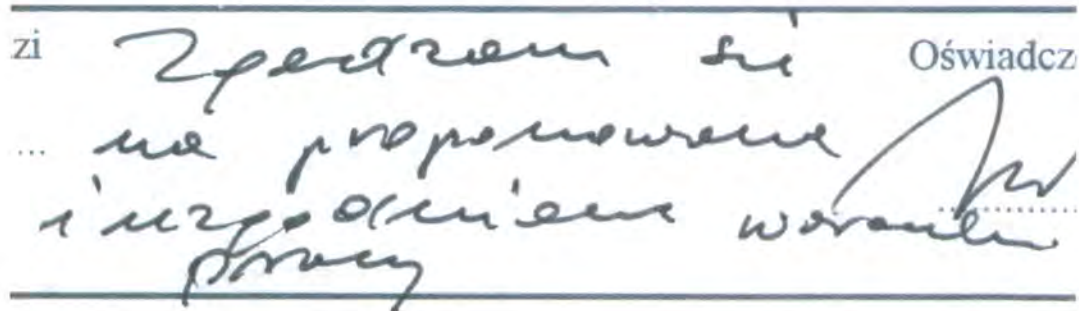 zi Zgadzam się Oświadcz
... na proponowane
i uzgodnione warunki
pracy